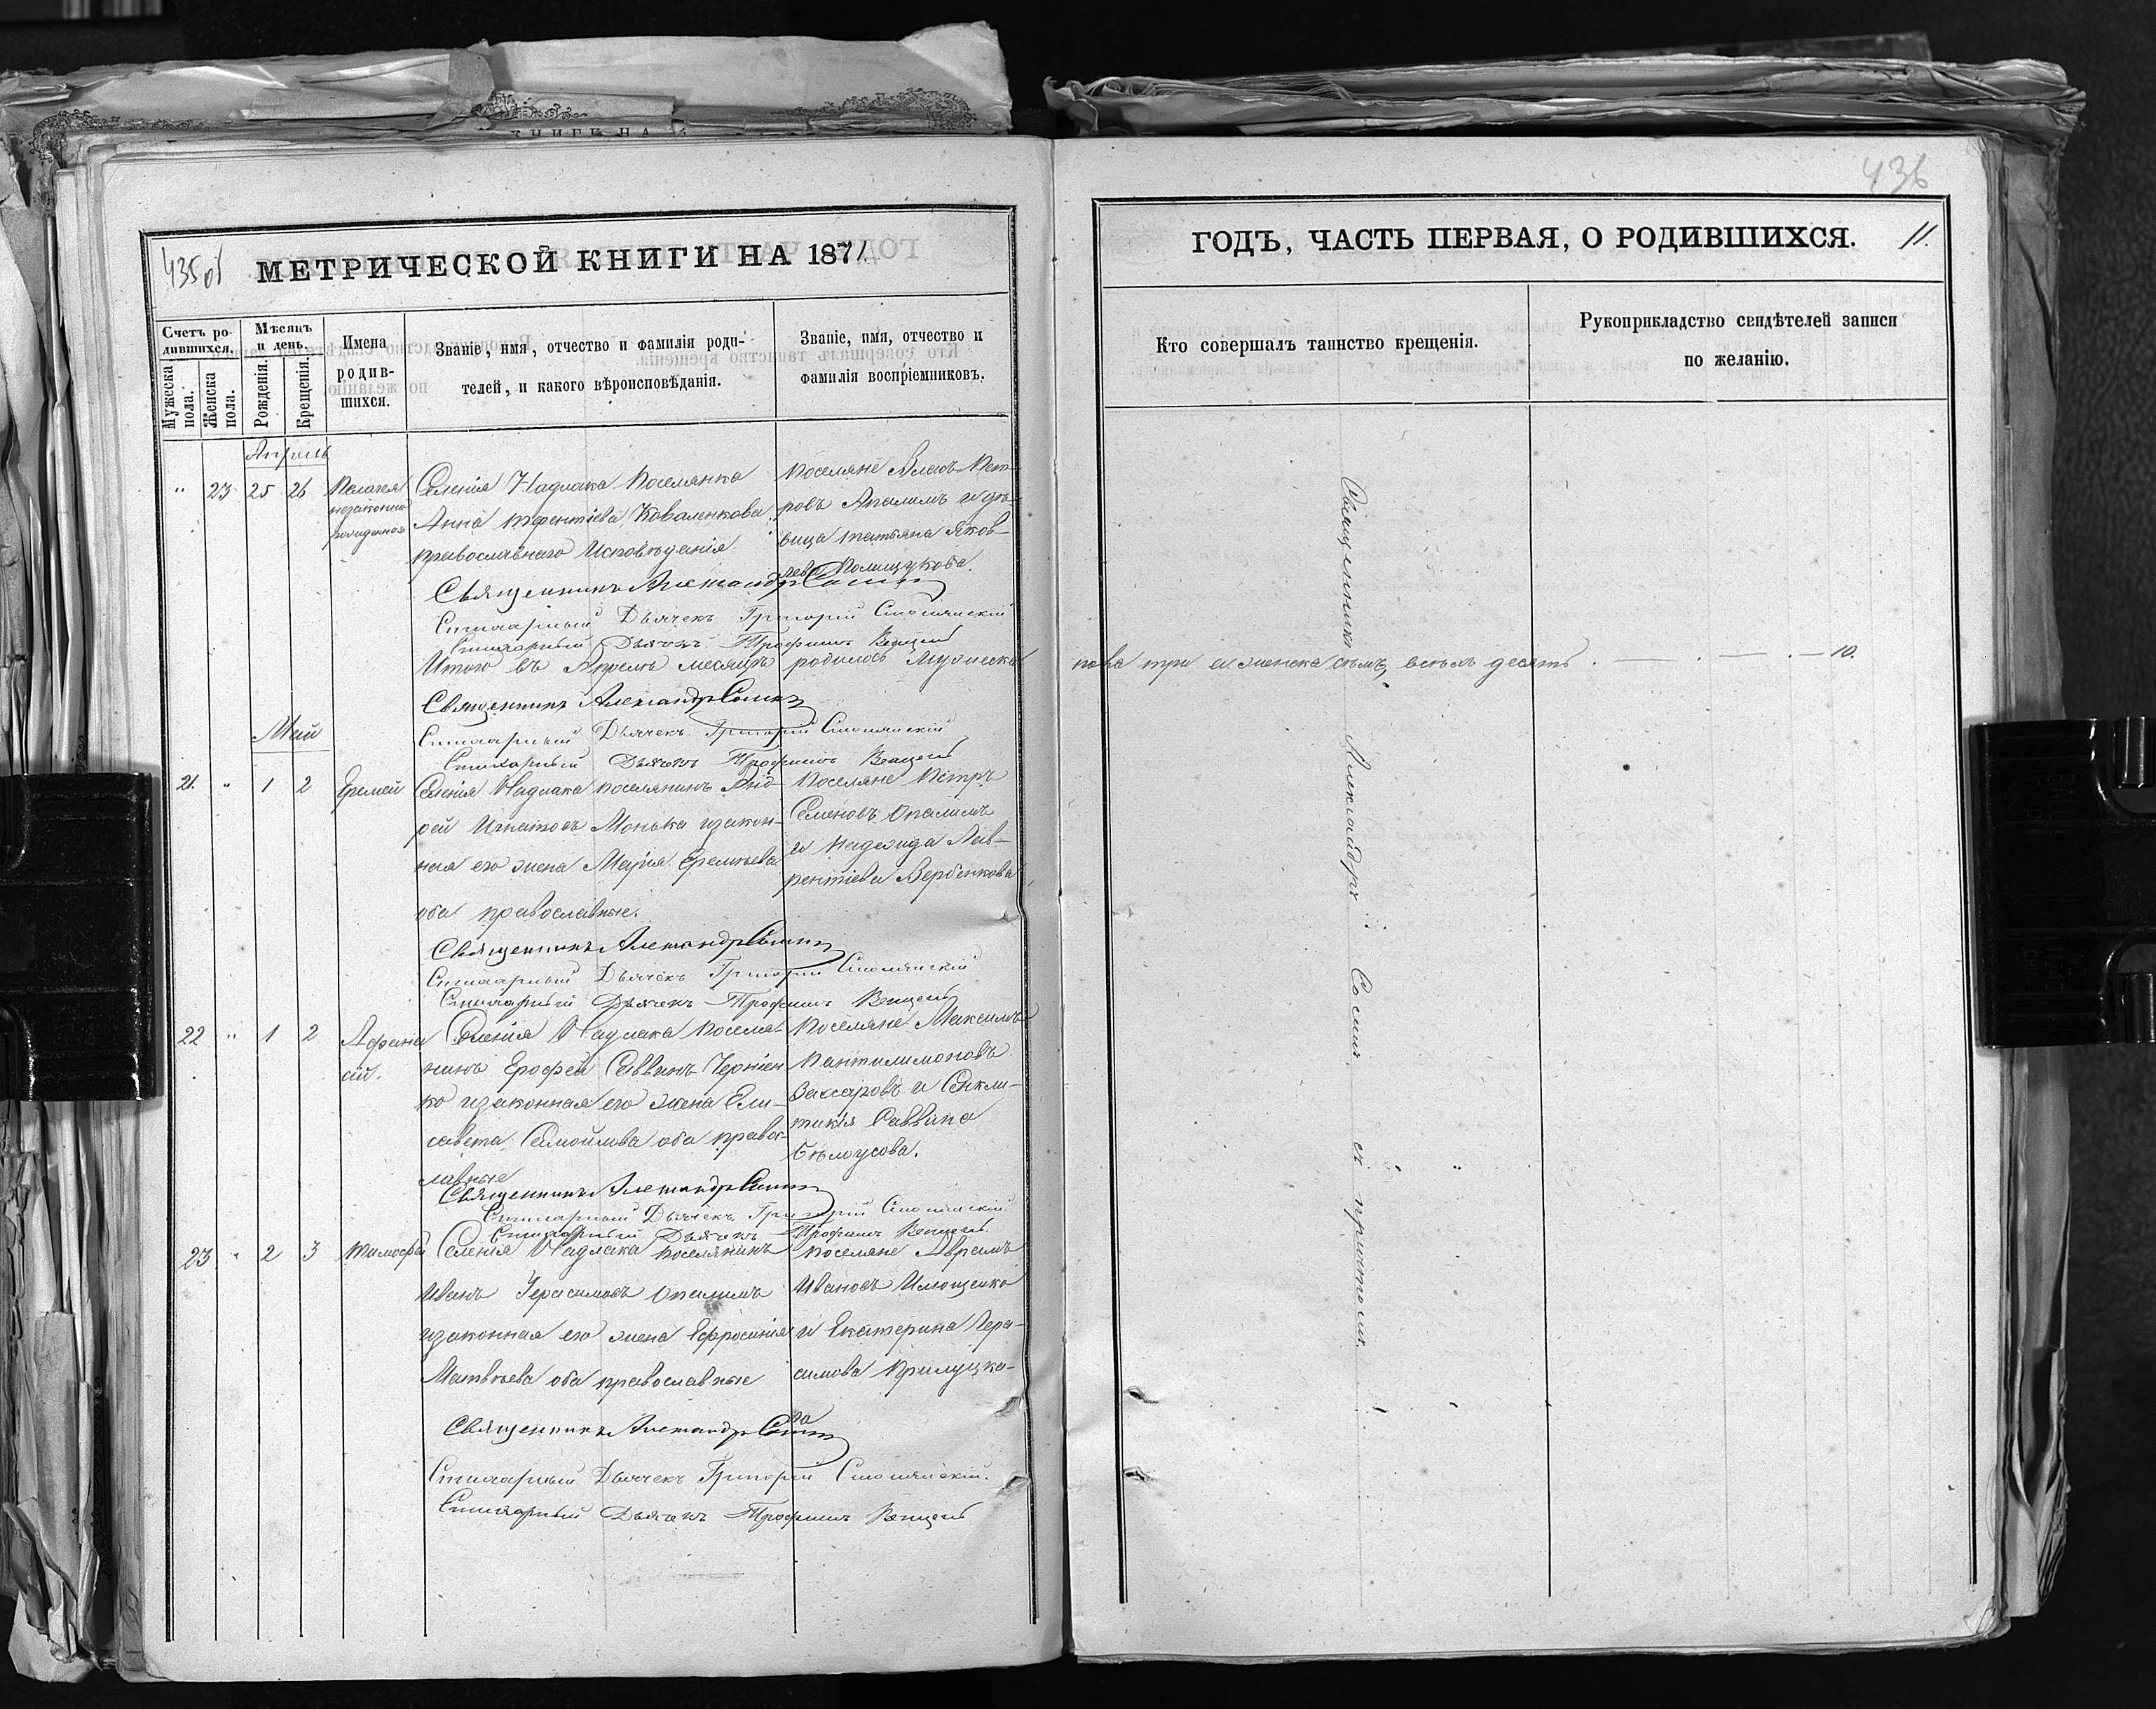 КНИГИ НА
435 об
МЕТРИЧЕСКОЙ КНИГИ НА 1871.
Счетъ ро-
дившихся.
Мѣсяцъ
и день.
Имена
родив-
шихся.
Званіе, имя, отчество и фамилія роди-
телей, и какого вѣроисповѣданія.
Званіе, имя, отчество и
фамилія воспріемниковъ.
Мужеска
пола.
Женска
пола.
Рожденія.
Крещенія.
Апрѣль
" 23 25 26 Пелагея
незаконно
рожденная
Селенія Надлака поселянка
Анна Терентіева Коваленкова
православнаго исповѣданія
поселяне Власъ Пет-
ровъ Апалимъ и дѣ-
вица татьяна Яков-
лева Полищукова.
Священникъ Александръ Сосин
Стихарный Дьячекъ Григорій
Стихарный Дьячекъ Трофимъ
Итого въ Апрелѣ месяцѣ родилось мужеска
Священникъ Александръ Сосин
Стихарный Дьячекъ Григорій
Стихарный Дьячекъ Трофимъ
Май
21. " 1 2 Еремей
Селенія Надлака поселянинъ Анд-
рей Игнатовъ Монька и закон-
ная его жена Марія Еремѣева
оба православные.
поселяне Петръ
Семеновъ Опалимъ
и Надежда Лав-
рентіева Вербенкова
Священникъ Александръ Сосин
Стихарный Дьячекъ Григорій
Стихарный Дьячекъ Трофимъ
22 " 1 2 Афана
сій.
Селенія Надлака поселя-
нинъ Ерофей Саввинъ Чернien
ко и законная его жена Ели-
савета Самойлова оба право-
славные
поселяне Максимъ
Пантилимоновъ
Захаровъ и Синкли-
тикія Саввина
Бѣлоусова.
Священникъ Александръ Сосин
Стихарный Дьячекъ Григорій
Стихарный Дьячекъ Трофимъ
23 " 2 3 тимофей
Селенія Надлака поселянинъ
Иванъ Герасимовъ Опалимъ
и законная его жена Ефросинія
Матвѣева оба православные
поселяне Аврамъ
Ивановъ Илющенко
и Екатерина Гера-
симова Прилуцко-
ва
Священникъ Александръ Сосин
Стихарный Дьячекъ Григорій
Стихарный Дьячекъ Трофимъ
436
ГОДЪ, ЧАСТЬ ПЕРВАЯ, О РОДИВШИХСЯ.
11.
Кто совершалъ таинство крещенія.
Рукоприкладство свидѣтелей записи
по желанію.
пола три и женска семъ, всѣхъ десять . — . — . — 10.
Священникъ Александръ Сосинъ съ причтомъ.